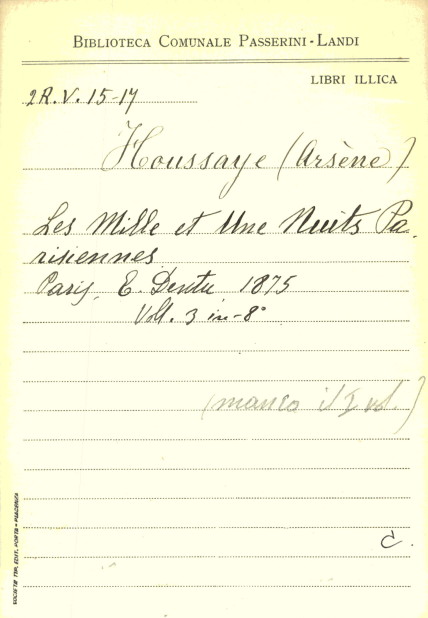 BIBLIOTECA COMUNALE PASSERINI-LANDI
LIBRI ILLICA
2R.V. 15-17
Houssaye (Arsène)
Les Mille et Une Nuits Pa
risiennes
Paris, E. Dentu 1875
Voll. 3 in-8°
(manca il I vol.)
C.
SOCIETÀ TIP. EDIT. PORTA - PIACENZA